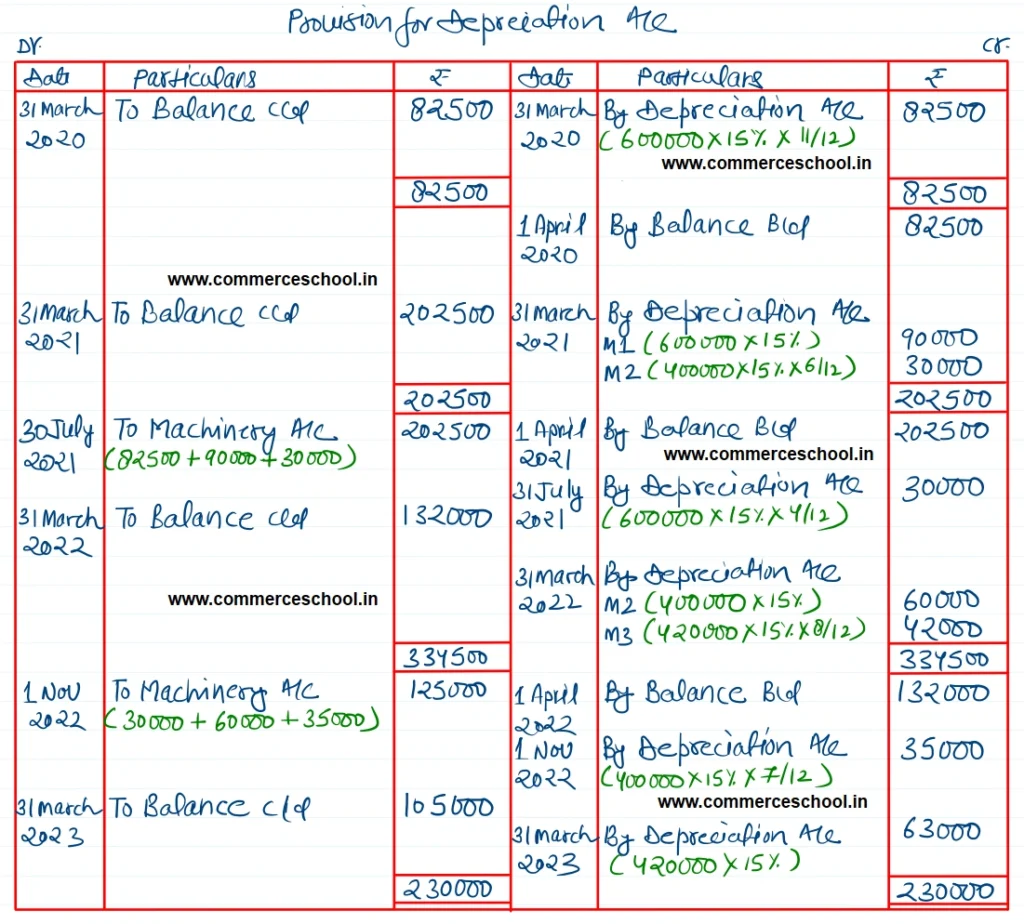 Provision for Depreciation A/c
Dr. Cr.
Date Particulars ₹ Date Particulars ₹
31 March To Balance c/d 82500 31 March By Depreciation A/c 82500
2020 2020 (600000 x 15% x 11/12)
www.commerceschool.in
82500 82500
1 April By Balance B/d 82500
2020
www.commerceschool.in
31 March To Balance c/d 202500 31 March By Depreciation A/c
2021 2021 M1 (600000 x 15%) 90000
M2 (400000 x 15% x 6/12) 30000
202500 202500
30 July To Machinery A/c 202500 1 April By Balance B/d 202500
2021 (82500 + 90000 + 30000) 2021 www.commerceschool.in
31 July By Depreciation A/c 30000
31 March To Balance c/d 132000 2021 (600000 x 15% x 4/12)
2022
31 March By Depreciation A/c
www.commerceschool.in 2022 M2 (400000 x 15%) 60000
M3 (420000 x 15% x 8/12) 42000
334500 334500
1 Nov To Machinery A/c 125000 1 April By Balance B/d 132000
2022 (30000 + 60000 + 35000) 2022
1 Nov By Depreciation A/c 35000
2022 (400000 x 15% x 7/12)
31 March To Balance c/d 105000 www.commerceschool.in
2023 31 March By Depreciation A/c 63000
2023 (420000 x 15%)
230000 230000